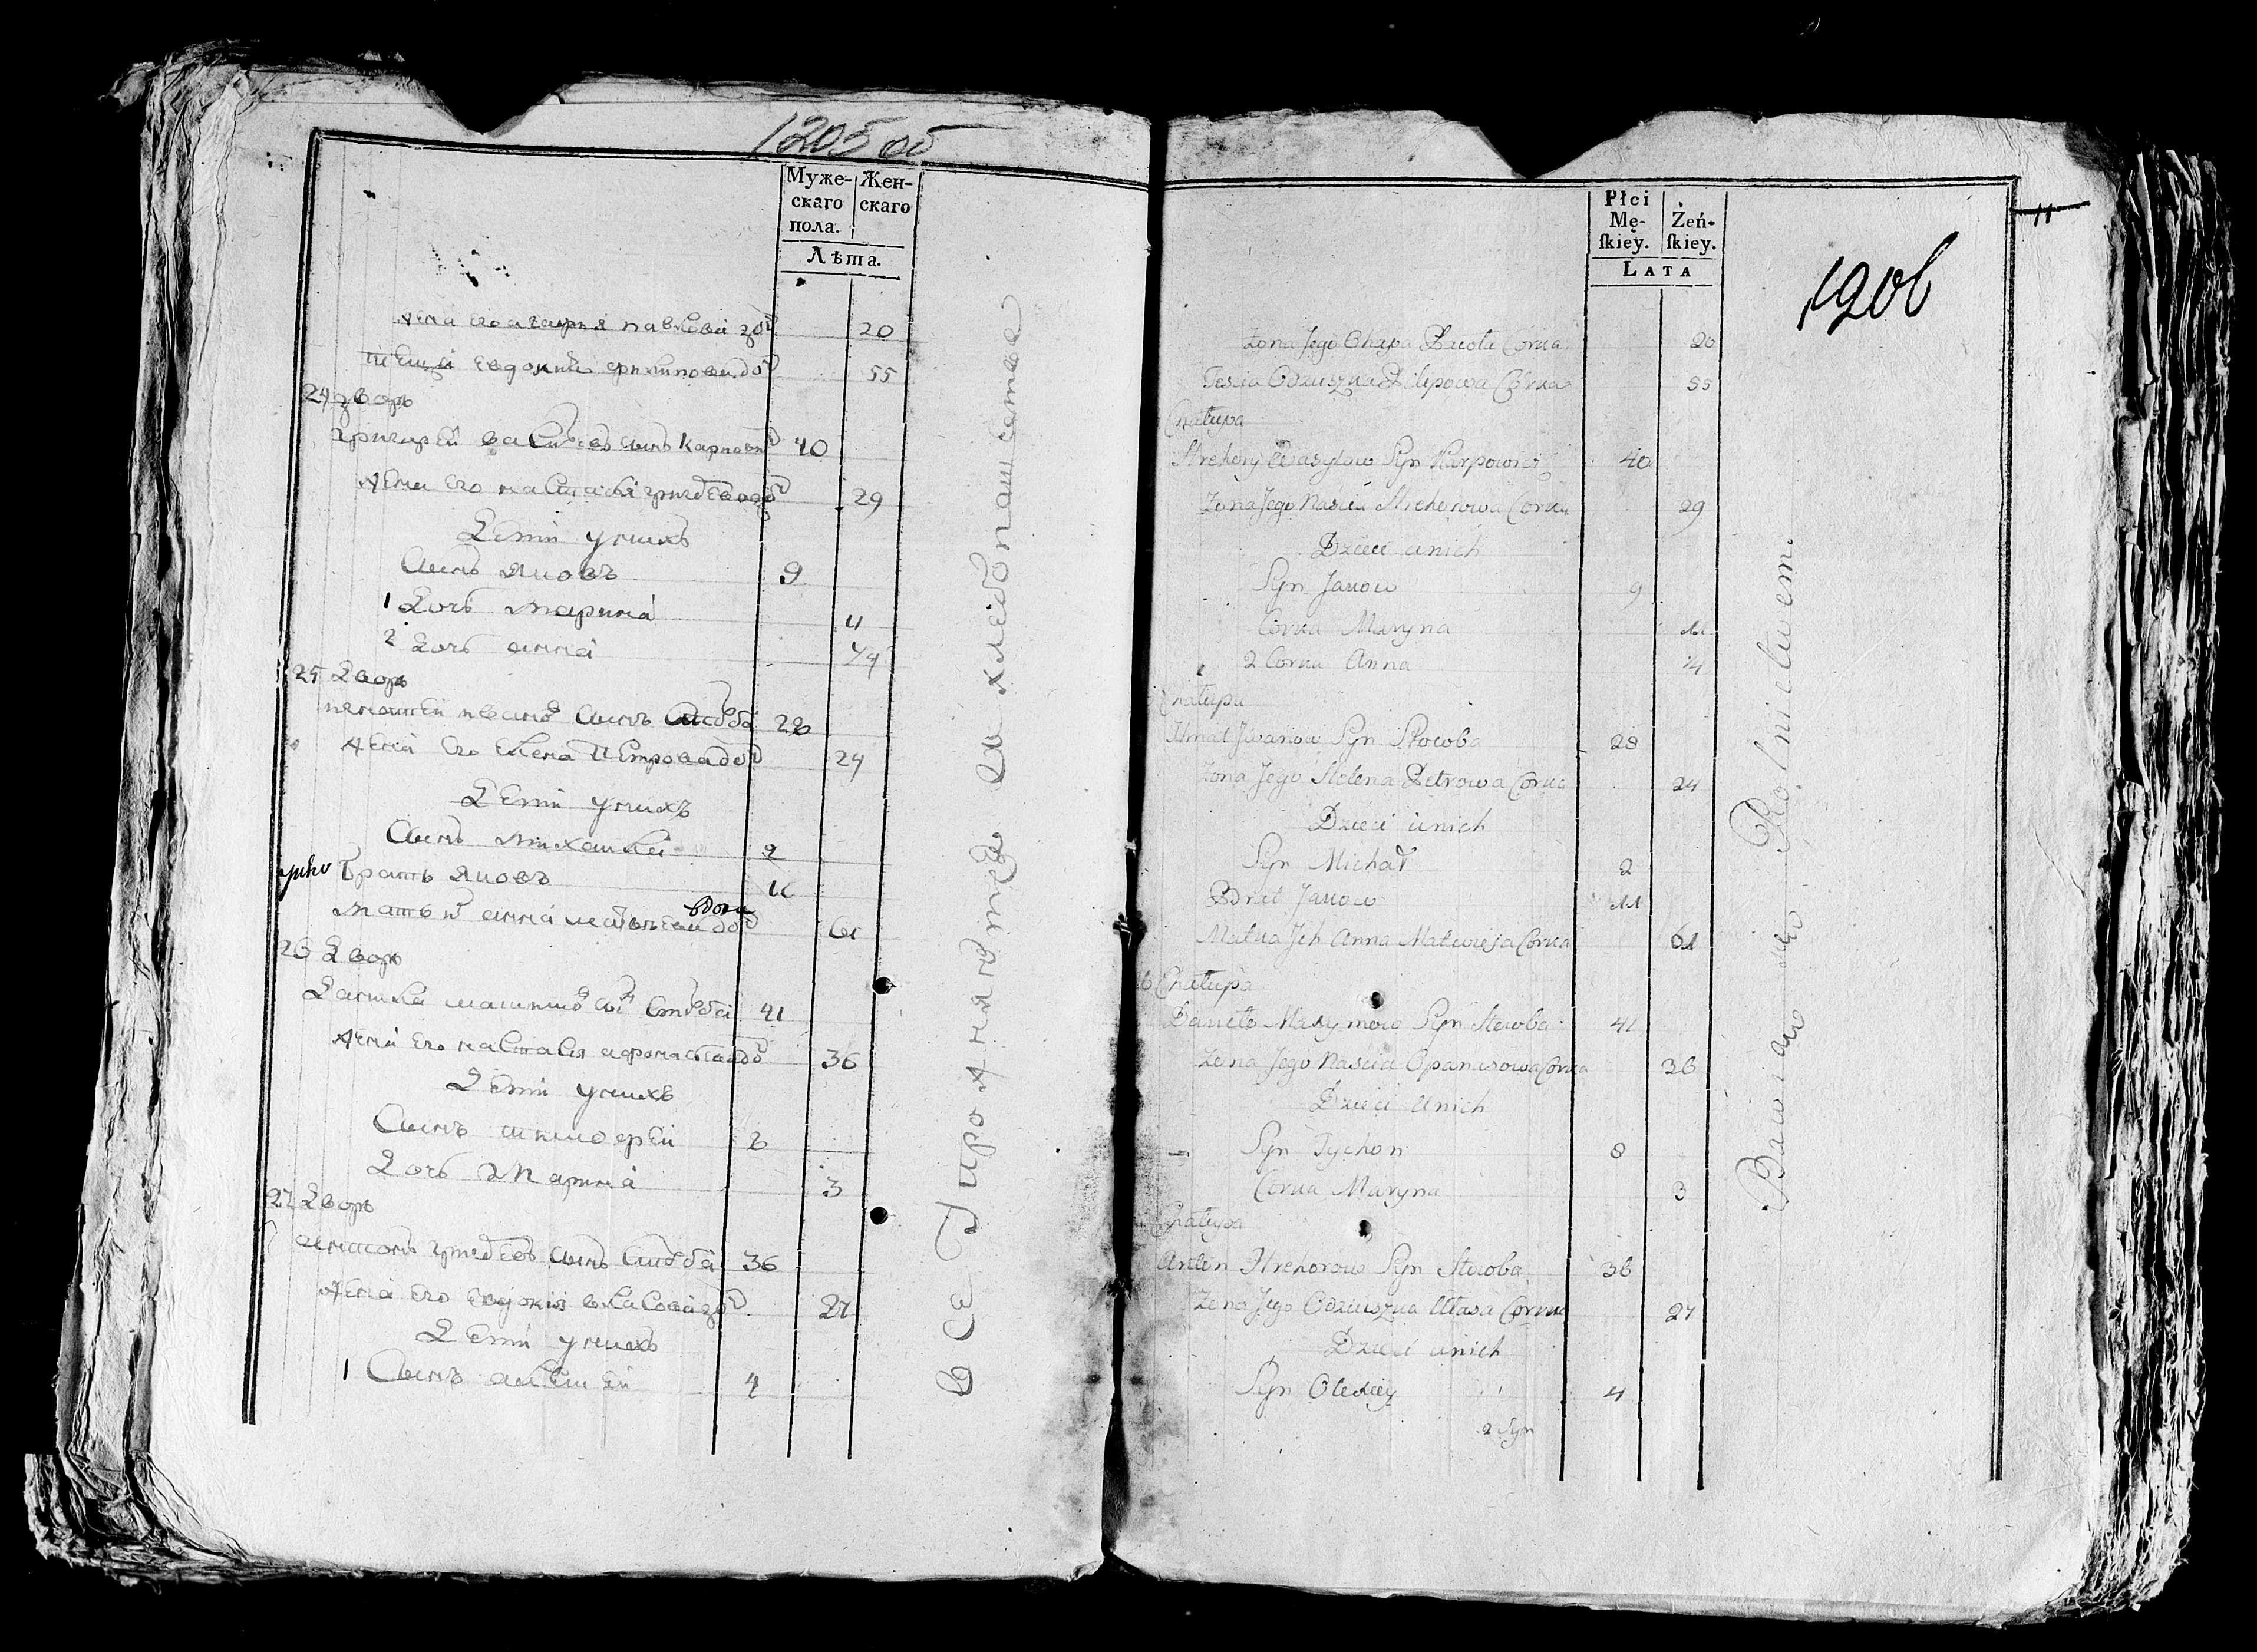 1205 об
Муже-
скаго
пола.
Жен-
скаго
Лѣта.
Жена его агафия павлова доч 20
теща евдокия филипова доч 55
24 дворъ
Григорей василевъ сынъ Карпович 40
Жена его настасья григорева доч 29
Дети у нихъ
Сынъ яковъ 9
1 Доч марина 11
2 Доч анна 1/4
25 Дворъ
игнатей иванов сынъ 28
Жена его елена Петрова доч 24
Дети у нихъ
Сынъ михайла 2
Братъ яковъ 11
вдова
мать их анна доч 61
26 Дворъ
Данила 41
Жена его настася афонасьева доч 36
Дети у нихъ
Сынъ 8
Доч Марина 3
27 Дворъ
антонъ григоревъ сынъ 36
Жена его евдокия власова доч 27
Дети у нихъ
1 Сынъ алексей 4
Все Упрожняются в хлебопашестве
11
1206
Płci
Mę-
skiey.
Żeń-
skiey.
LATA
Zona Jego Ohapa Pawła Corka 20
Tescia Odziuszka Filipowa Corka 55
Chałupa
Hrehory Wasylow Syn Karpowicz 40
Zona Jego Nascia Hrehorowa Corka 29
Dzieci unich
Syn Jakow 9
Corka Maryna 11
2 Corka Anna 1/4
Chałupa
Ihnat Jwanow Syn Stowba 28
Zona Jego Holena Petrowa Corka 24
Dzieci unich
Syn Michał 2
Brat Jakow 11
Matka Jch Anna Matwieja Corka 61
6 Chałupa
Daniło Maxymow Syn Stowba 41
Zona Jego Nascia Opanasowa Corka 36
Dzieci unich
Syn Tychon 8
Corka Maryna 3
Chałupa
Anton Hrehorow Syn Stowba 36
Zona Jego Odziuszka Ułasa Corka 27
Dzieci unich
Syn Olexiey 4
2 Syn
Bawią się Rolnictwem